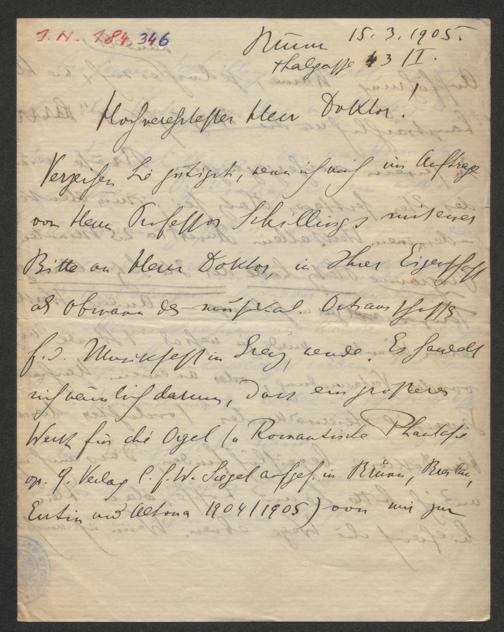 I. N. 184.346
Brünn 15. 3. 1905.
Thalgasse 43/I.
Hochverehrtester Herr Doktor!
Verzeihen Sie gütigst, wenn ich mich im Auftrage
von Herrn Professor Schillings mit einer
Bitte an Herrn Doktor, in Ihrer Eigenschaft
als Obmann des musikal. Ortsausschusses
f. d. Musikfest in Graz, wende. Es handelt
sich nämlich darum, dass ein größeres
Werk für die Orgel (Romantische Phantasie
op. 9. Verlag C. F. W. Siegel aufgef. in Brünn,
Eutin und Altona 1904/1905) von mir zur